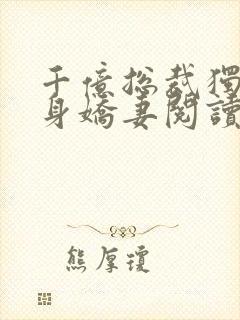 千億總裁獨
身嬌妻閱讀
熊厚瓊